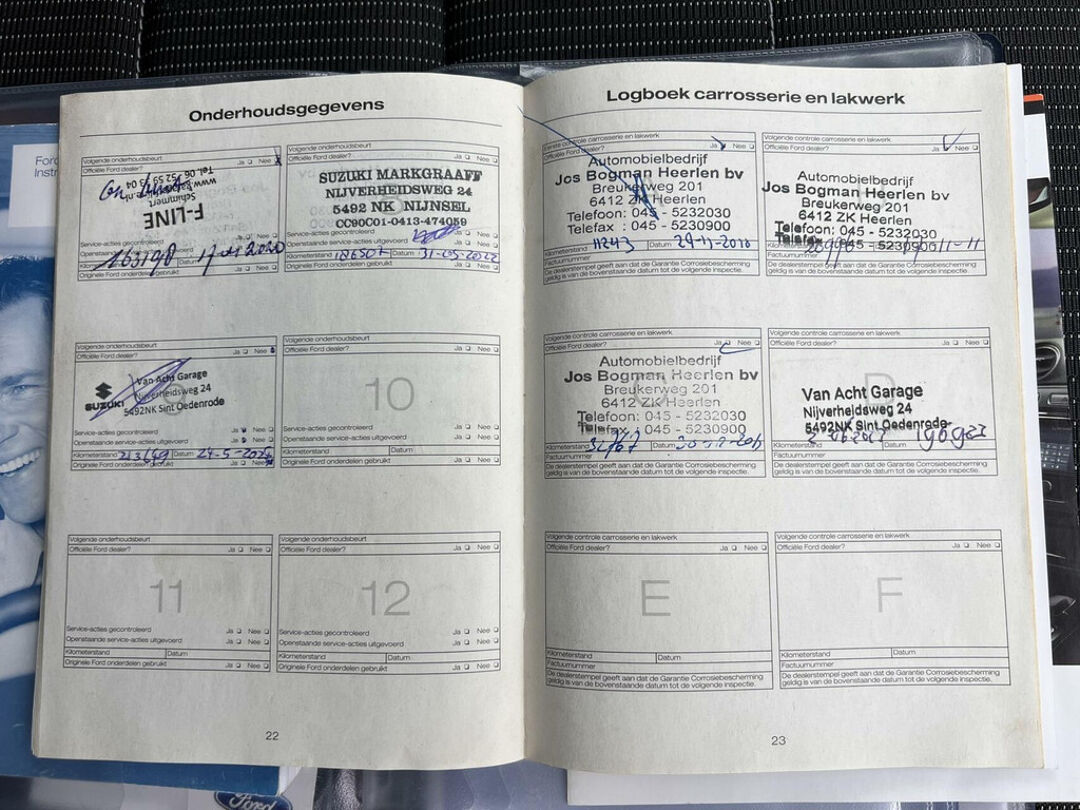 Onderhoudsgegevens
Volgende onderhoudsbeurt
Officiële Ford dealer? Ja Nee
F-LINE
Schimmert
Service-acties gecontroleerd Ja Nee
Openstaande service-acties uitgevoerd Ja Nee
Kilometerstand 163198 Datum
Originele Ford onderdelen gebruikt Ja Nee
Volgende onderhoudsbeurt
Officiële Ford dealer? Ja Nee
SUZUKI MARKGRAAFF
NIJVERHEIDSWEG 24
5492 NK NIJNSEL
CC90C01-0413-474059
Service-acties gecontroleerd Ja Nee
Openstaande service-acties uitgevoerd Ja Nee
Kilometerstand Datum 31-05-2022
Originele Ford onderdelen gebruikt Ja Nee
Volgende onderhoudsbeurt
Officiële Ford dealer? Ja Nee
9
SUZUKI
Van Acht Garage
Nijverheidsweg 24
5492NK Sint Oedenrode
Service-acties gecontroleerd Ja Nee
Openstaande service-acties uitgevoerd Ja Nee
Kilometerstand 213649 Datum 24-5-2024
Originele Ford onderdelen gebruikt Ja Nee
Volgende onderhoudsbeurt
Officiële Ford dealer? Ja Nee
10
Service-acties gecontroleerd Ja Nee
Openstaande service-acties uitgevoerd Ja Nee
Kilometerstand Datum
Originele Ford onderdelen gebruikt Ja Nee
Volgende onderhoudsbeurt
Officiële Ford dealer? Ja Nee
11
Service-acties gecontroleerd Ja Nee
Openstaande service-acties uitgevoerd Ja Nee
Kilometerstand Datum
Originele Ford onderdelen gebruikt Ja Nee
Volgende onderhoudsbeurt
Officiële Ford dealer? Ja Nee
12
Service-acties gecontroleerd Ja Nee
Openstaande service-acties uitgevoerd Ja Nee
Kilometerstand Datum
Originele Ford onderdelen gebruikt Ja Nee
22
Logboek carrosserie en lakwerk
Eerste controle carrosserie en lakwerk
Officiële Ford dealer? Ja Nee
Automobielbedrijf
Jos Bogman Heerlen bv
Breukerweg 201
6412 ZK Heerlen
Telefoon: 045 - 5232030
Telefax : 045 - 5230900
Kilometerstand 11243 Datum 29-11-2010
Factuurnummer
De dealerstempel geeft aan dat de Garantie Corrosiebescherming
geldig is van de bovenstaande datum tot de volgende inspectie.
Volgende controle carrosserie en lakwerk
Officiële Ford dealer? Ja Nee
Automobielbedrijf
Jos Bogman Heerlen bv
Breukerweg 201
6412 ZK Heerlen
Telefoon: 045 - 5232030
Telefax : 045 - 5230900
Factuurnummer
De dealerstempel geeft aan dat de Garantie Corrosiebescherming
geldig is van de bovenstaande datum tot de volgende inspectie.
Volgende controle carrosserie en lakwerk
Officiële Ford dealer? Ja Nee
C
Automobielbedrijf
Jos Bogman Heerlen bv
Breukerweg 201
6412 ZK Heerlen
Telefoon: 045 - 5232030
Telefax : 045 - 5230900
Kilometerstand Datum
Factuurnummer
De dealerstempel geeft aan dat de Garantie Corrosiebescherming
geldig is van de bovenstaande datum tot de volgende inspectie.
Volgende controle carrosserie en lakwerk
Officiële Ford dealer? Ja Nee
D
Van Acht Garage
Nijverheidsweg 24
5492NK Sint Oedenrode
Kilometerstand Datum
Factuurnummer
De dealerstempel geeft aan dat de Garantie Corrosiebescherming
geldig is van de bovenstaande datum tot de volgende inspectie.
Volgende controle carrosserie en lakwerk
Officiële Ford dealer? Ja Nee
E
Kilometerstand Datum
Factuurnummer
De dealerstempel geeft aan dat de Garantie Corrosiebescherming
geldig is van de bovenstaande datum tot de volgende inspectie.
Volgende controle carrosserie en lakwerk
Officiële Ford dealer? Ja Nee
F
Kilometerstand Datum
Factuurnummer
De dealerstempel geeft aan dat de Garantie Corrosiebescherming
geldig is van de bovenstaande datum tot de volgende inspectie.
23
Ford